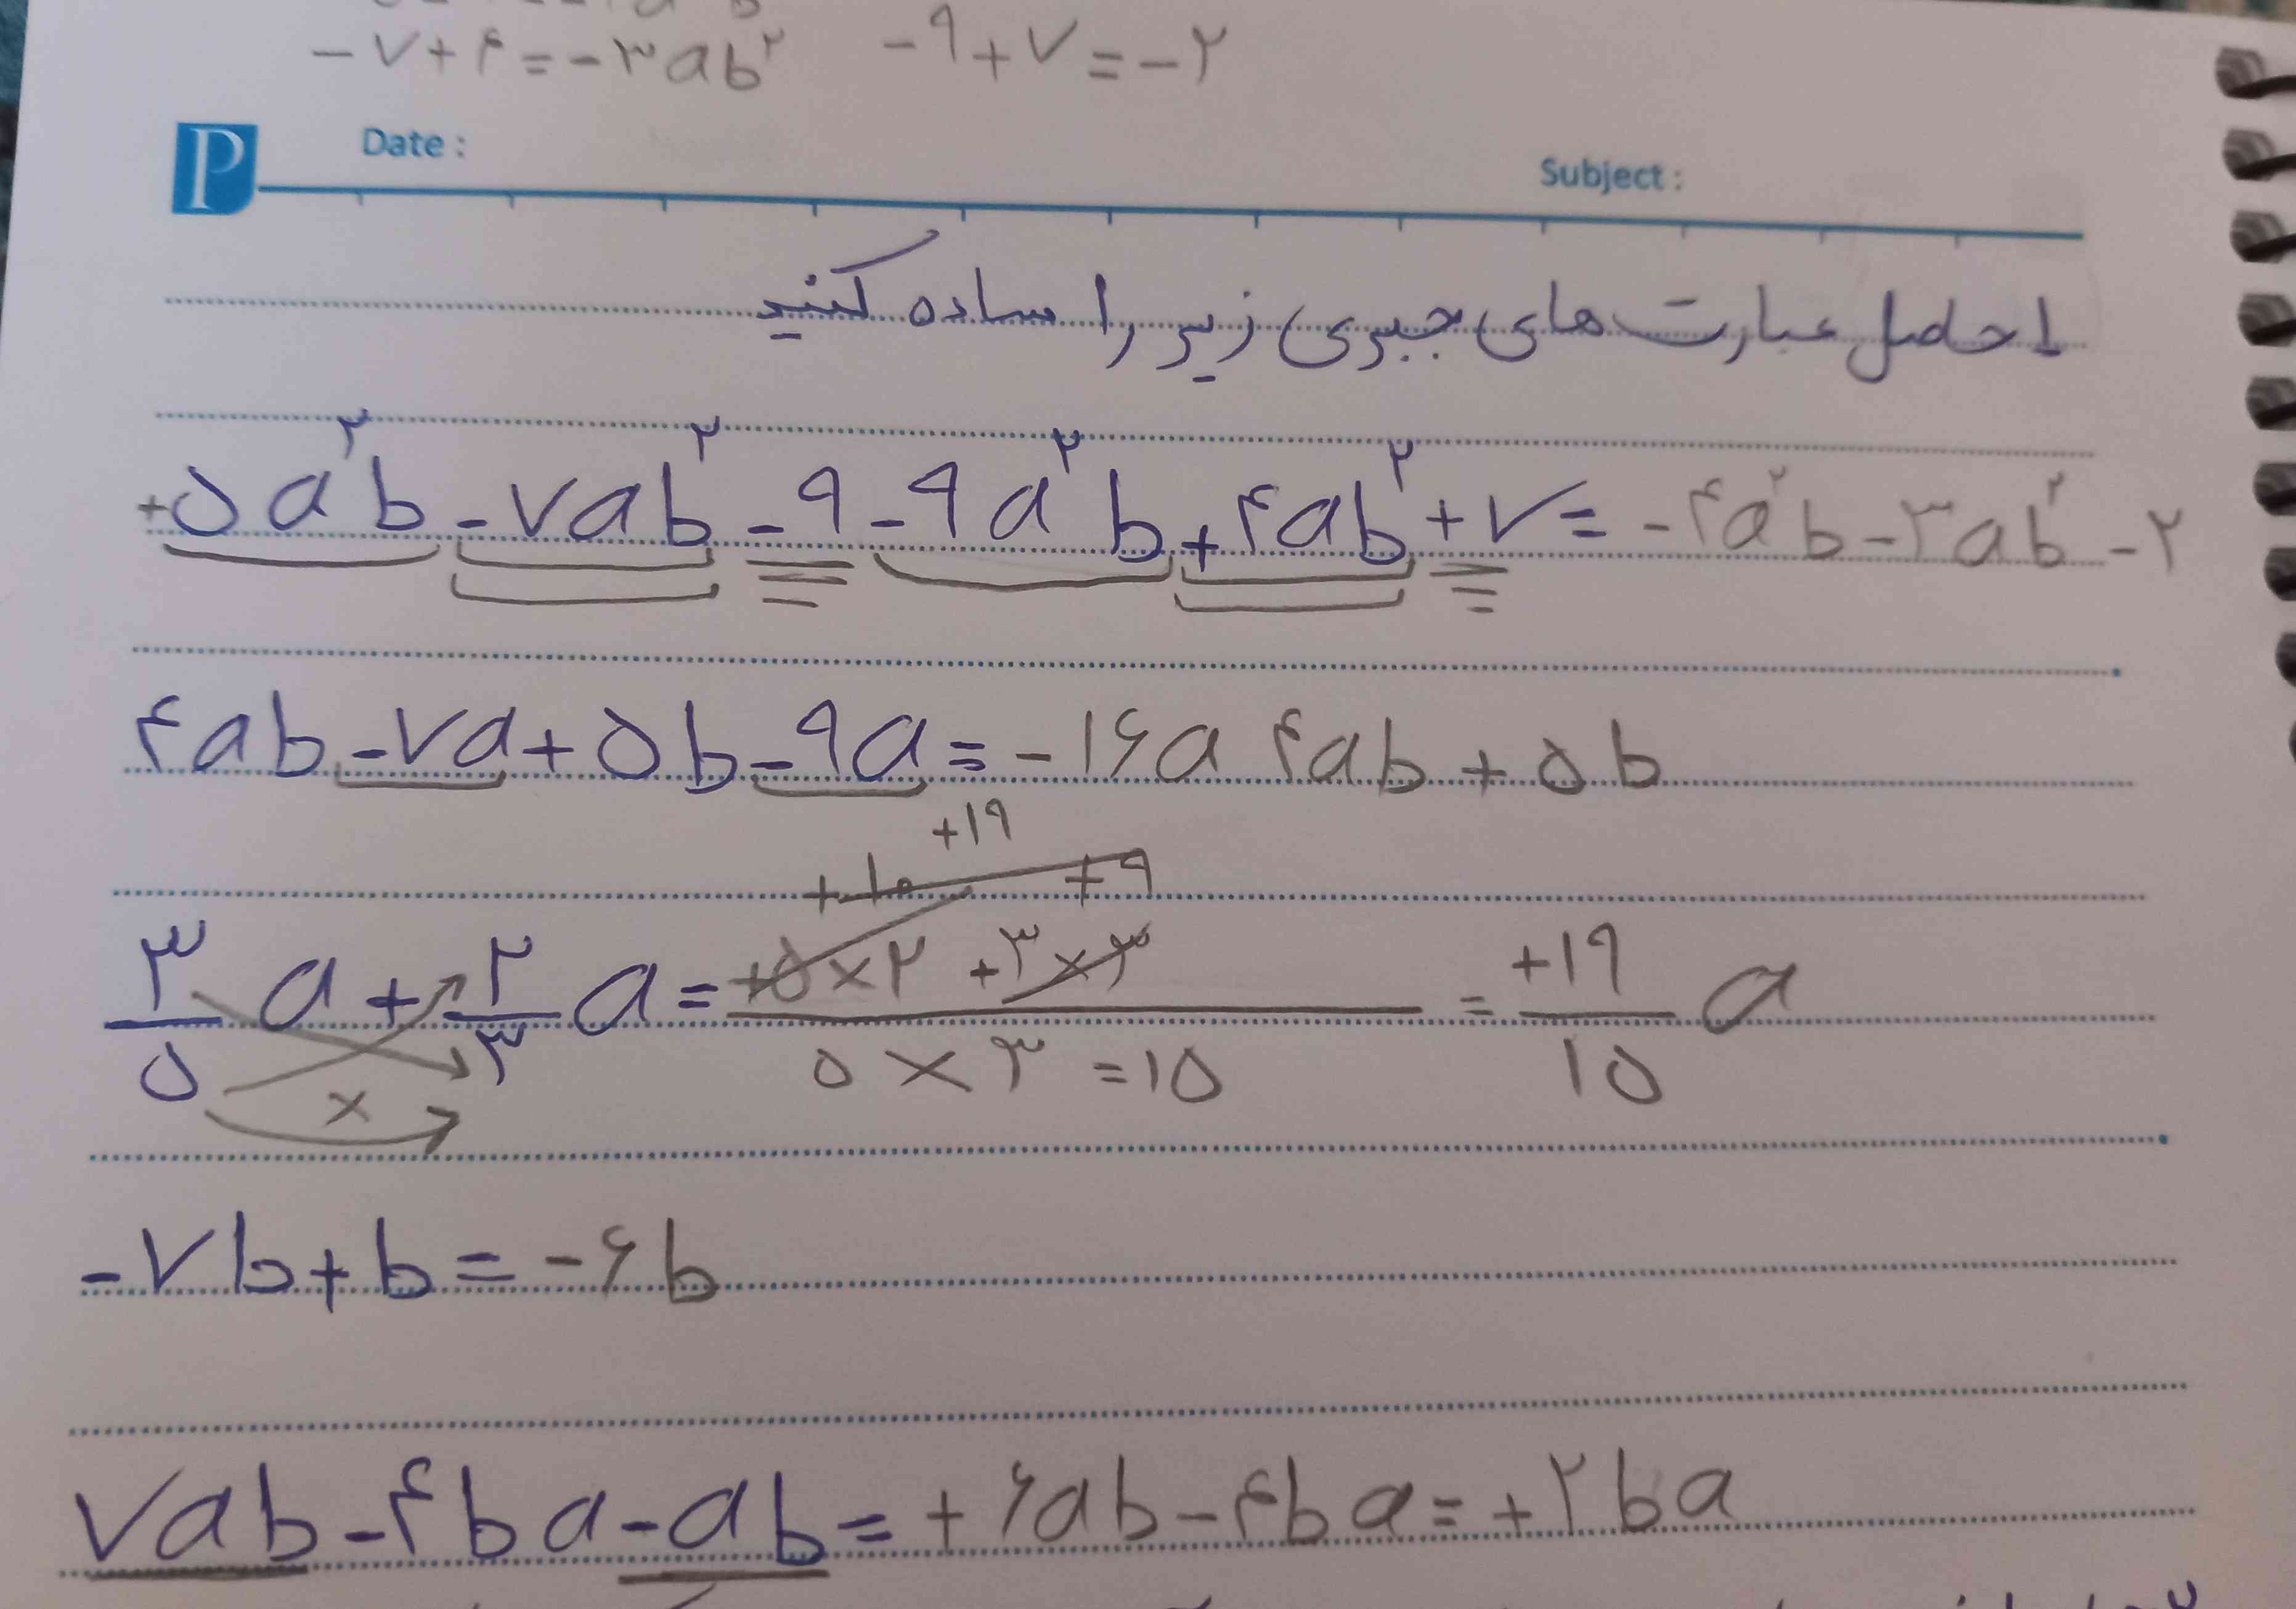 -۷+۴=-۳ab² -۹+۷=-۲
P Date : Subject :
۱ حاصل عبارت های جبری زیر را ساده کنید
+۵a²b-۷ab²-۹-۹a²b+۴ab²+۷=-۴a²b-۳ab²-۲
۴ab-۷a+۵b-۹a=-۱۶a ۴ab+۵b
+۱۹
+۱۰ +۹
۳/۵ a+۲/۳ a=(+۵×۲ +۳×۳)/(۵×۳=۱۵) = +۱۹/۱۵ a
×
-۷b+b=-۶b
۷ab-۴ba-ab=+۶ab-۴ba=+۲ba